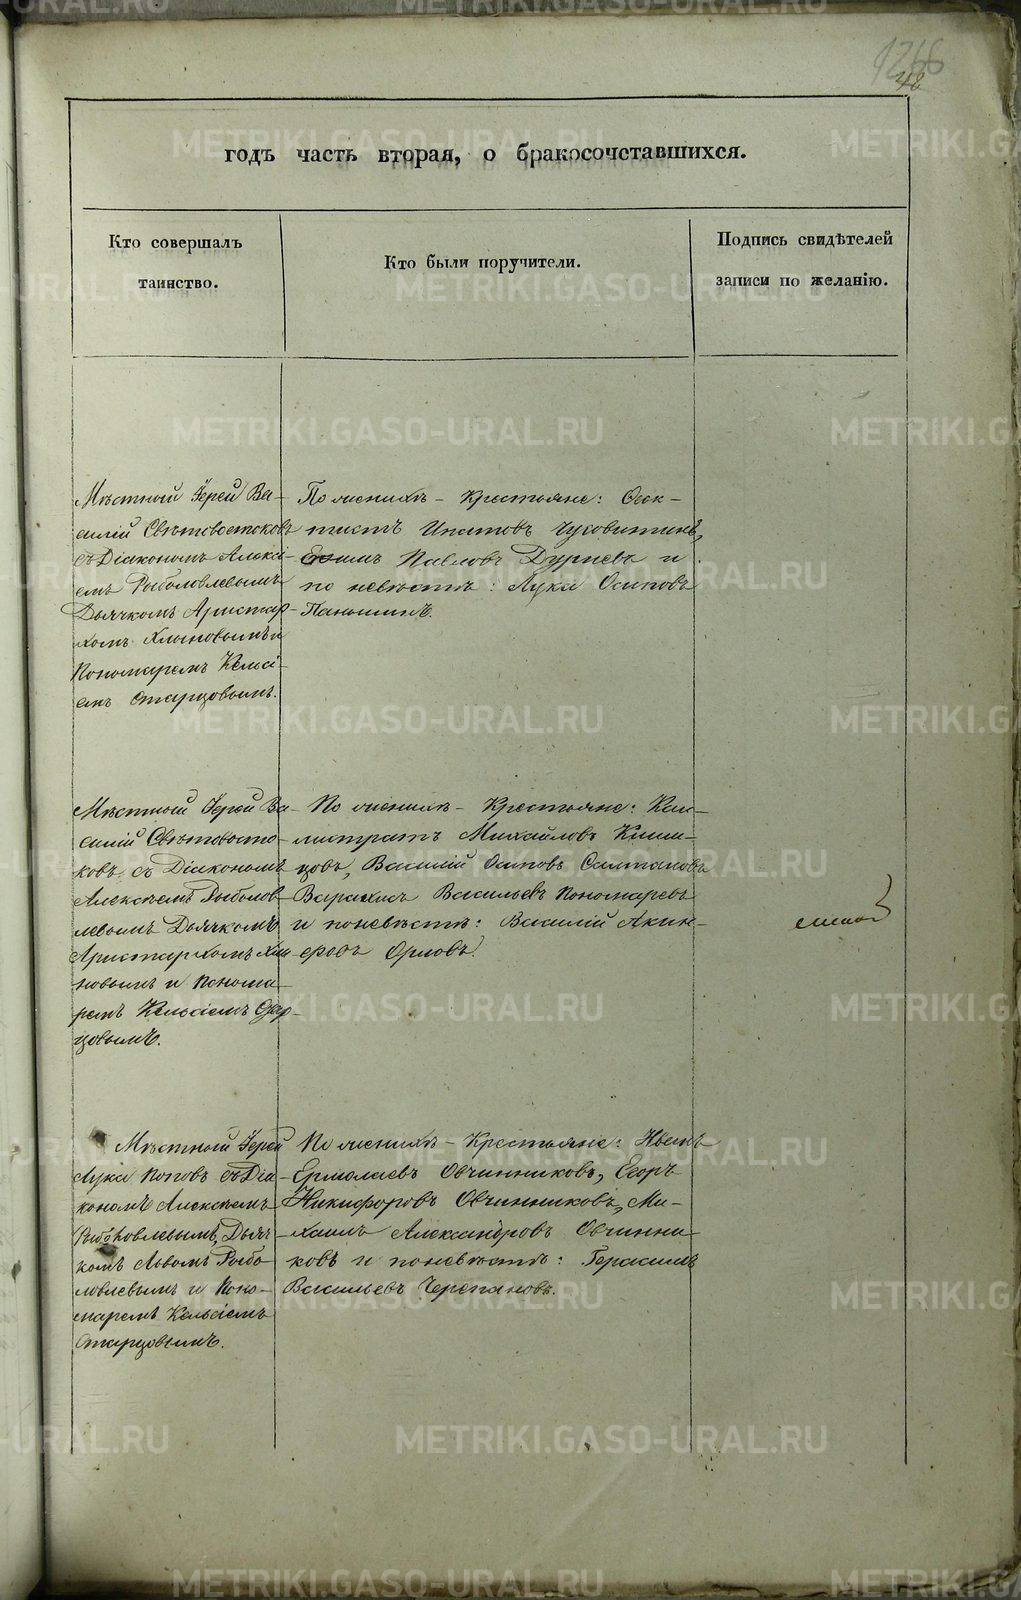 1266
48
годъ часть вторая, о бракосочетавшихся.
Кто совершалъ
таинство.
Кто были поручители.
Подпись свидѣтелей
записи по желанію.
Мѣстный Іерей Ва-
силій Свѣтовостоковъ
съ Діакономъ Алексі-
емъ Рыболовлевымъ
Дьячкомъ Аристар-
хомъ Хлыновымъ и
Пономаремъ Кельсі-
емъ Старцовымъ.
По женихѣ - Крестьяне: Ѳеок-
тистъ Ипатовъ Чусовитинъ,
Ефимъ Павловъ Дурневъ и
по невѣстѣ: Лука Осиповъ
Паньшинъ.
Мѣстный Іерей Ва-
силій Свѣтовосто-
ковъ съ Діакономъ
Алексѣемъ Рыболов-
левымъ Дьячкомъ
Аристархомъ Хлы-
новымъ и Понома-
ремъ Кельсіемъ Стар-
цовымъ.
По женихѣ - Крестьяне: Кал-
листратъ Михайловъ
Василій Осиповъ Салтановъ
Васильевъ Пономаревъ
и по невѣстѣ: Василій Акин-
фовъ Орловъ.
Мѣстный Іерей
Лука Поповъ съ Діа-
кономъ Алексѣемъ
Рыболовлевымъ, Дьяч-
комъ Львомъ Рыбо-
ловлевымъ и Поно-
маремъ Кельсіемъ
Старцовымъ.
По женихѣ - Крестьяне: Иванъ
Ермолаевъ Овчинниковъ, Егоръ
Никифоровъ Овчинниковъ, Ми-
хаилъ Александровъ Овчинни-
ковъ и по невѣстѣ: Герасимъ
Васильевъ Черепановъ.
METRIKI.GASO-URAL.RU